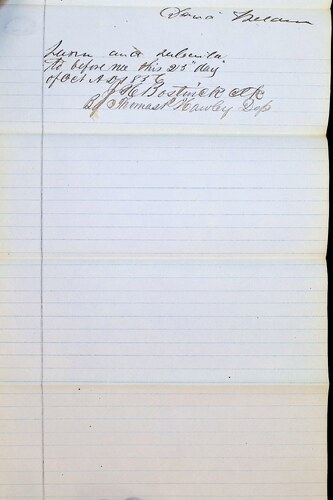 Sworn and subscribe
to before me this 23" day
of Oct A D 1856
J H Bostwick Clk
By Thomas P Hawley Dep